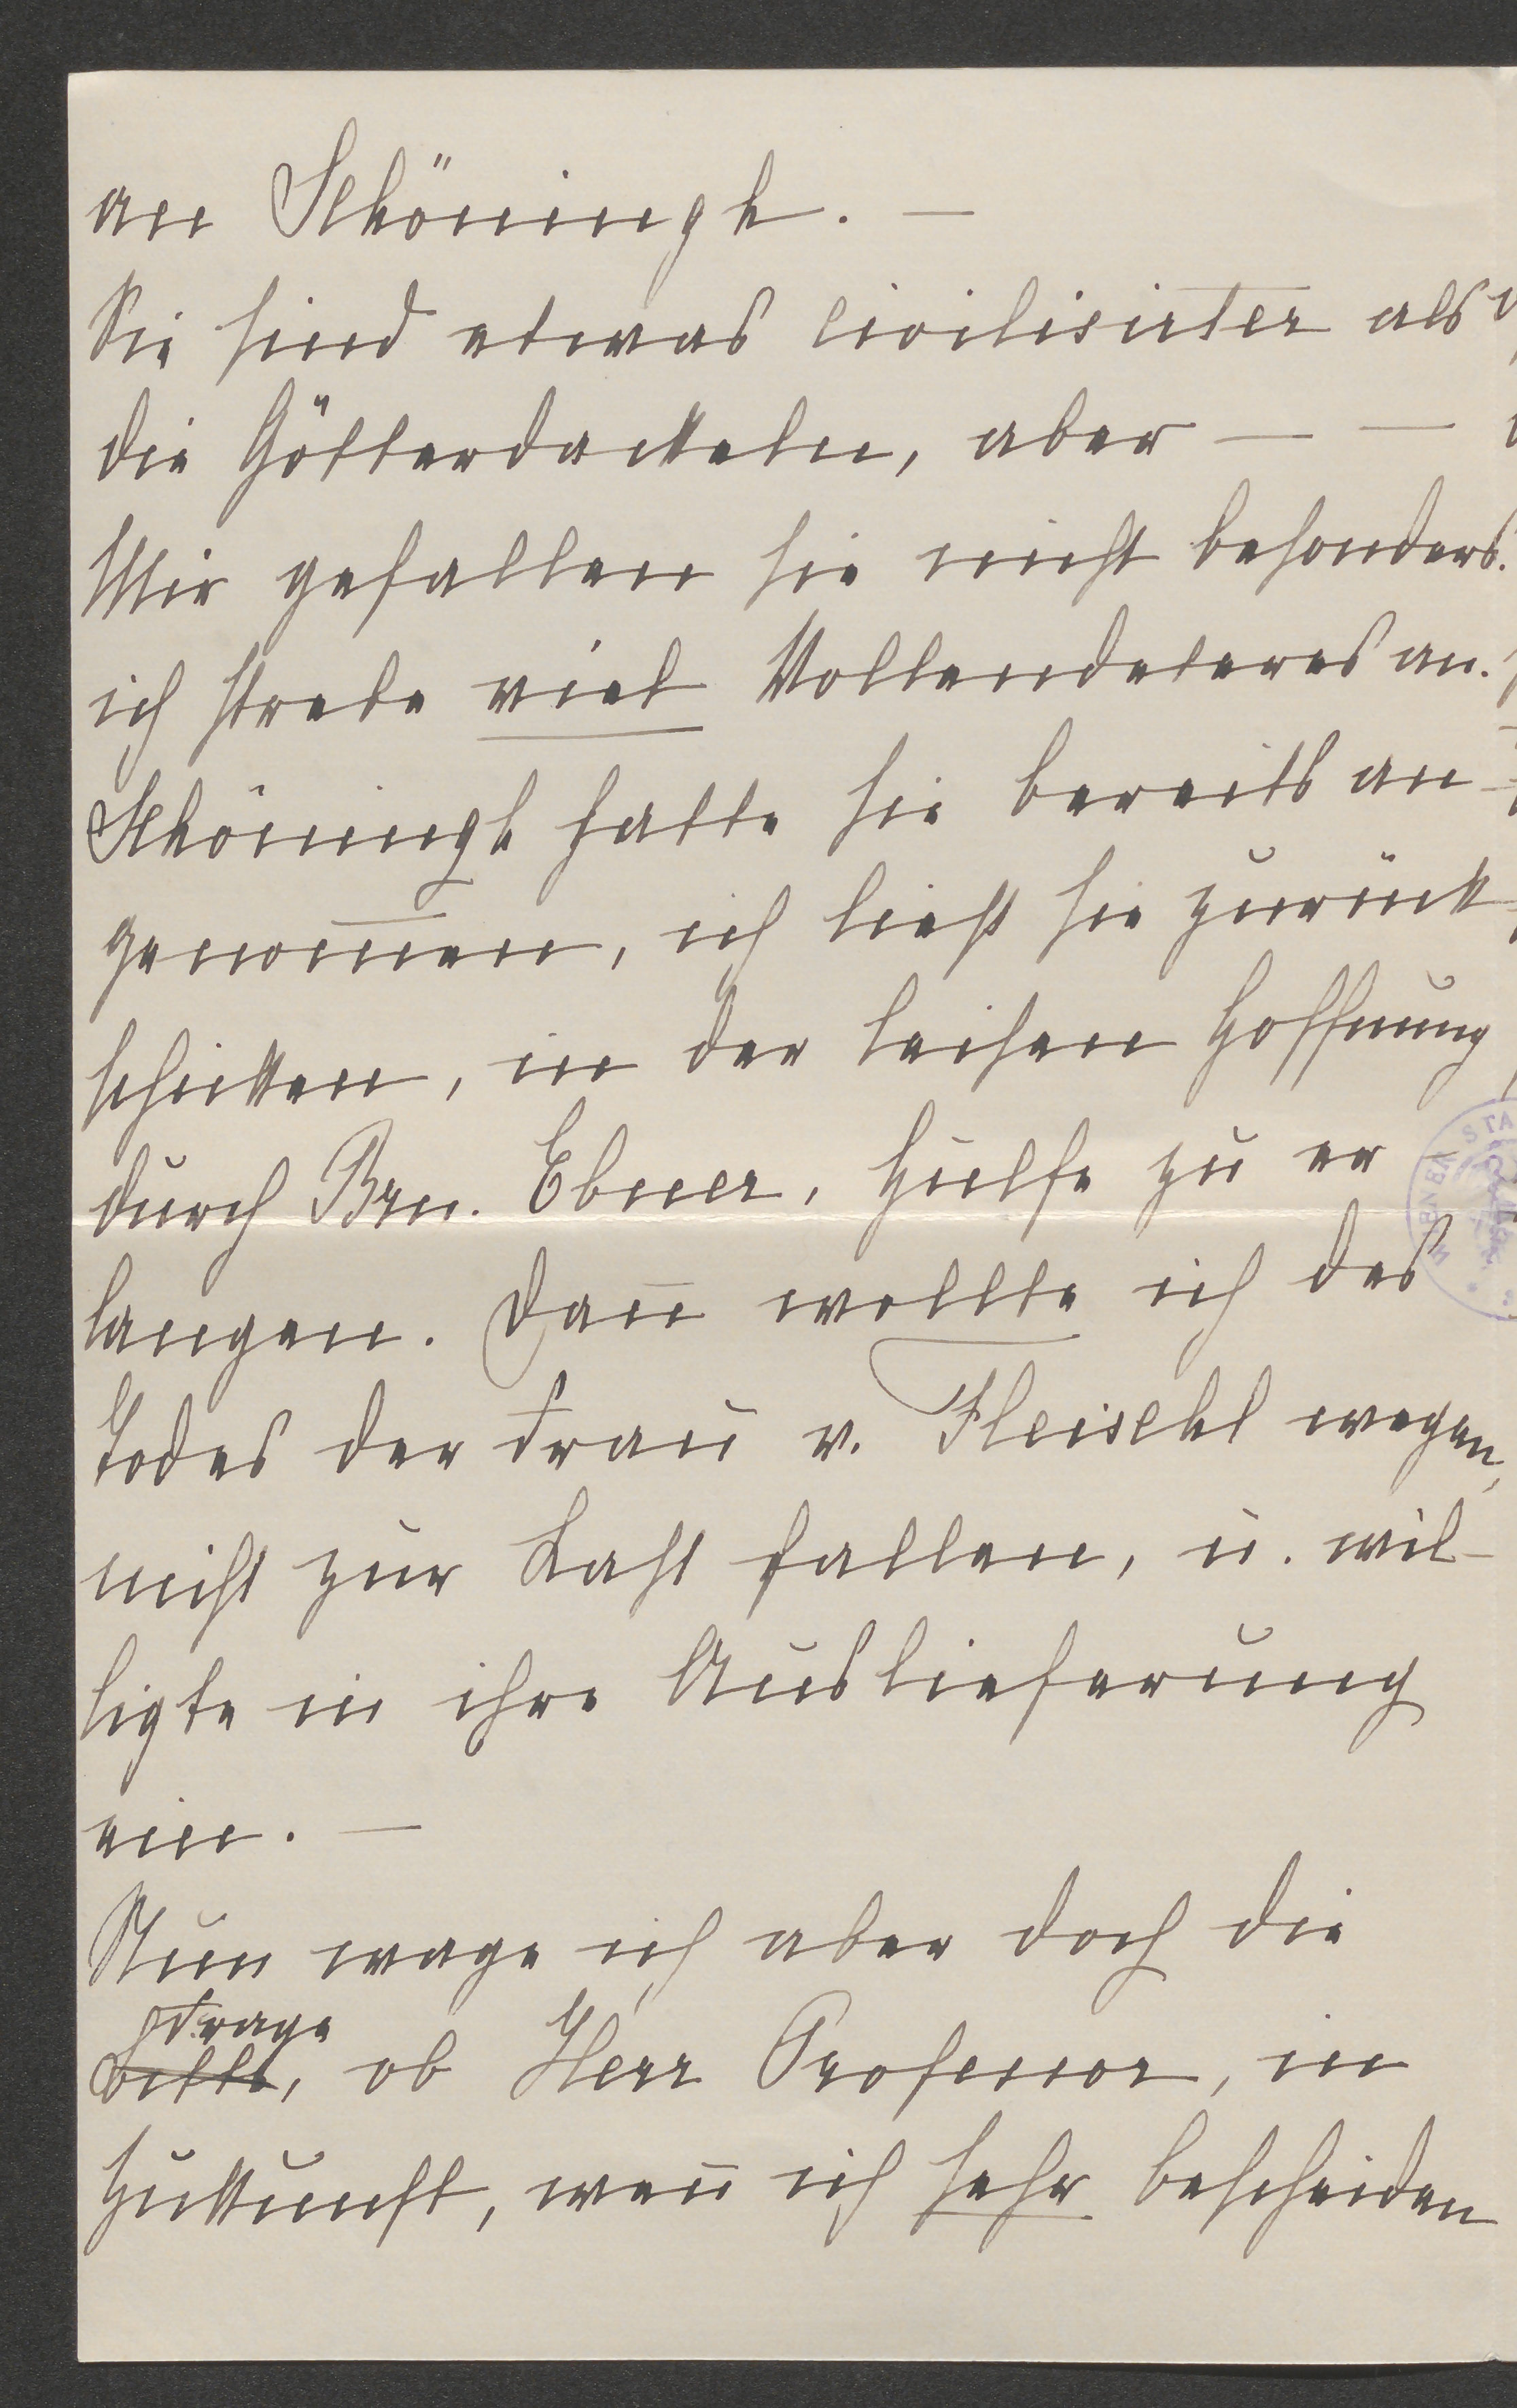 an Schöningh. —
Sie sind etwas civilisirter als
die Götterdackeln, aber — —
Mir gefallen sie nicht besonders.
ich strebe viel Vollendeteres an.
Schöningh hatte sie bereits an-
genom̄en, ich ließ sie zurück-
schicken, in der leisen Hoffnung
durch Brn. Ebner, Hülfe zu er
langen. Dan̄ wollte ich des
Todes der Frau v. Fleischl wegen,
nicht zur Last fallen, u. wil-
ligte in ihre Auslieferung
ein. —
Nun wage ich aber doch die
Frage
Bitte, ob Herr Professor, in
Zukunft, wen̄ ich sehr bescheiden
WIENER STA